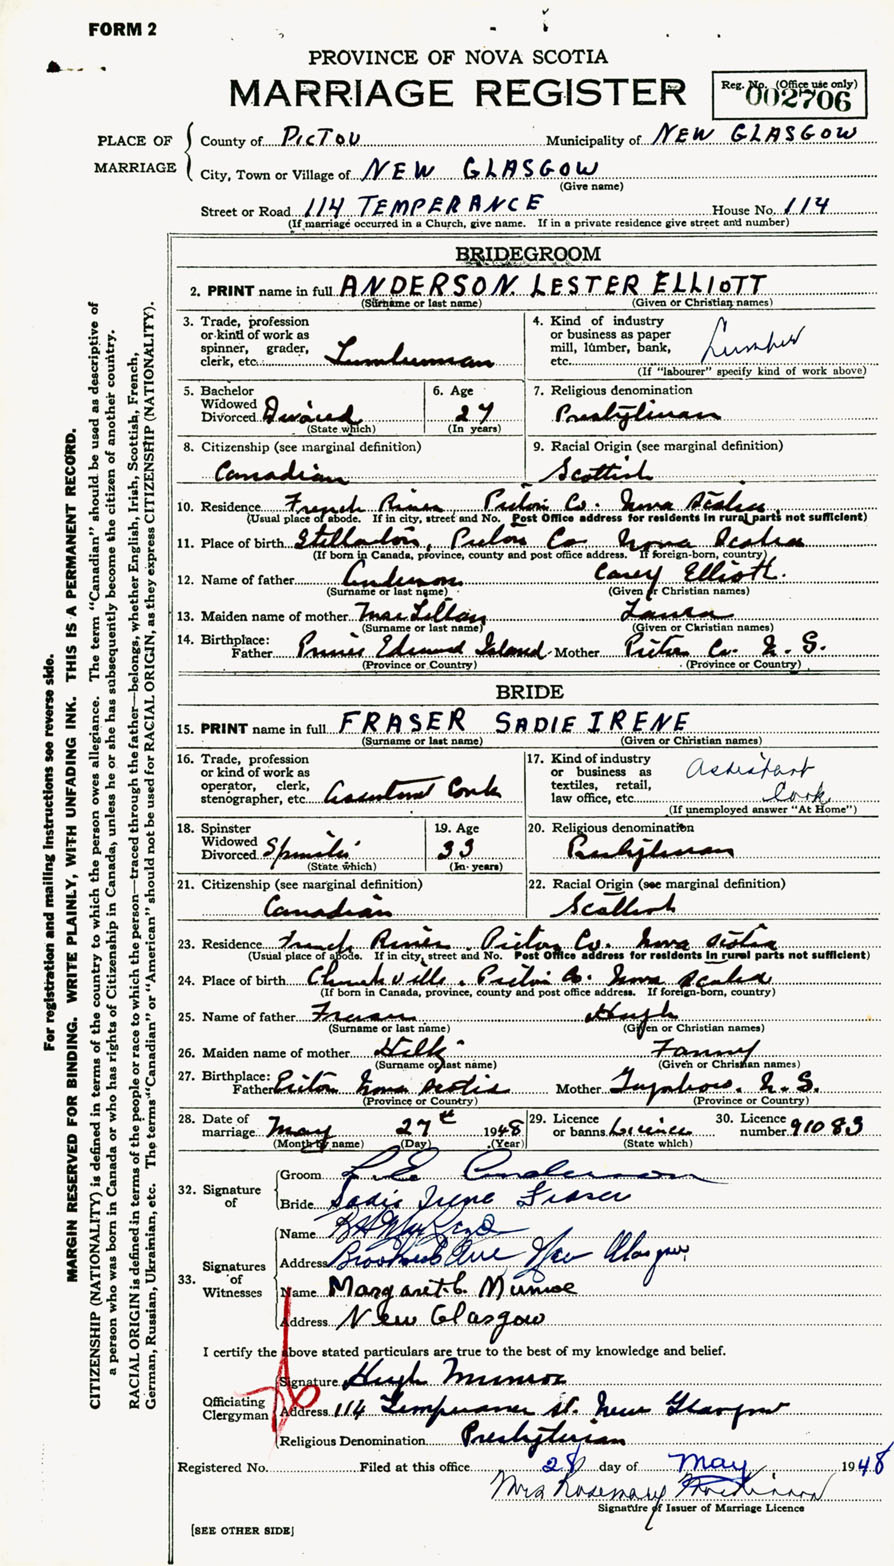 FORM 2
PROVINCE OF NOVA SCOTIA
MARRIAGE REGISTER
Reg. No. (Office use only)
002706
PLACE OF MARRIAGE
County of PICTOU Municipality of NEW GLASGOW
City, Town or Village of NEW GLASGOW
(Give name)
Street or Road 114 TEMPERANCE House No. 114
(If marriage occurred in a Church, give name. If in a private residence give street and number)
BRIDEGROOM
2. PRINT name in full ANDERSON. LESTER ELLIOTT
(Surname or last name) (Given or Christian names)
3. Trade, profession or kind of work as spinner, grader, clerk, etc. Lumberman
4. Kind of industry or business as paper mill, lumber, bank, etc. Lumber
(If "labourer" specify kind of work above)
5. Bachelor Widowed Divorced Divorced
(State which)
6. Age 27
(In years)
7. Religious denomination
Presbyterian
8. Citizenship (see marginal definition)
Canadian
9. Racial Origin (see marginal definition)
Scottish
10. Residence French River, Pictou Co. Nova Scotia
(Usual place of abode. If in city, street and No. Post Office address for residents in rural parts not sufficient)
11. Place of birth Stellarton, Pictou Co Nova Scotia
(If born in Canada, province, county and post office address. If foreign-born, country)
12. Name of father Anderson Carey Elliott.
(Surname or last name) (Given or Christian names)
13. Maiden name of mother MacLellan Laura
(Surname or last name) (Given or Christian names)
14. Birthplace:
Father Prince Edward Island Mother Pictou Co. N. S.
(Province or Country) (Province or Country)
BRIDE
15. PRINT name in full FRASER SADIE IRENE
(Surname or last name) (Given or Christian names)
16. Trade, profession or kind of work as operator, clerk, stenographer, etc. Assistant Cook
17. Kind of industry or business as textiles, retail, law office, etc. Assistant Cook
(If unemployed answer "At Home")
18. Spinster Widowed Divorced Spinster
(State which)
19. Age 33
(In years)
20. Religious denomination
Presbyterian
21. Citizenship (see marginal definition)
Canadian
22. Racial Origin (see marginal definition)
Scottish
23. Residence French River, Pictou Co. Nova Scotia
(Usual place of abode. If in city, street and No. Post Office address for residents in rural parts not sufficient)
24. Place of birth Churchville, Pictou Co. Nova Scotia
(If born in Canada, province, county and post office address. If foreign-born, country)
25. Name of father Fraser Hugh
(Surname or last name) (Given or Christian names)
26. Maiden name of mother Fanny
(Surname or last name) (Given or Christian names)
27. Birthplace:
Father Pictou Nova Scotia Mother N. S.
(Province or Country) (Province or Country)
28. Date of marriage May 27th 1948
(Month by name) (Day) (Year)
29. Licence or banns Licence
(State which)
30. Licence number 91083
32. Signature of
Groom L. E. Anderson
Bride Sadie Irene Fraser
33. Signatures of Witnesses
Name
Address Ave New Glasgow
Name Margaret C. Munroe
Address New Glasgow
I certify the above stated particulars are true to the best of my knowledge and belief.
Officiating Clergyman
Signature Hugh Munroe
Address 114 Temperance St. New Glasgow
Religious Denomination Presbyterian
Registered No. Filed at this office 28 day of May 1948
Mrs Rosemary
Signature of Issuer of Marriage Licence
[SEE OTHER SIDE]
For registration and mailing instructions see reverse side.
MARGIN RESERVED FOR BINDING. WRITE PLAINLY, WITH UNFADING INK. THIS IS A PERMANENT RECORD.
CITIZENSHIP (NATIONALITY) is defined in terms of the country to which the person owes allegiance. The term "Canadian" should be used as descriptive of
a person who was born in Canada or who has rights of Citizenship in Canada, unless he or she has subsequently become the citizen of another country.
RACIAL ORIGIN is defined in terms of the people or race to which the person—traced through the father—belongs, whether English, Irish, Scottish, French,
German, Russian, Ukrainian, etc. The terms "Canadian" or "American" should not be used for RACIAL ORIGIN, as they express CITIZENSHIP (NATIONALITY).